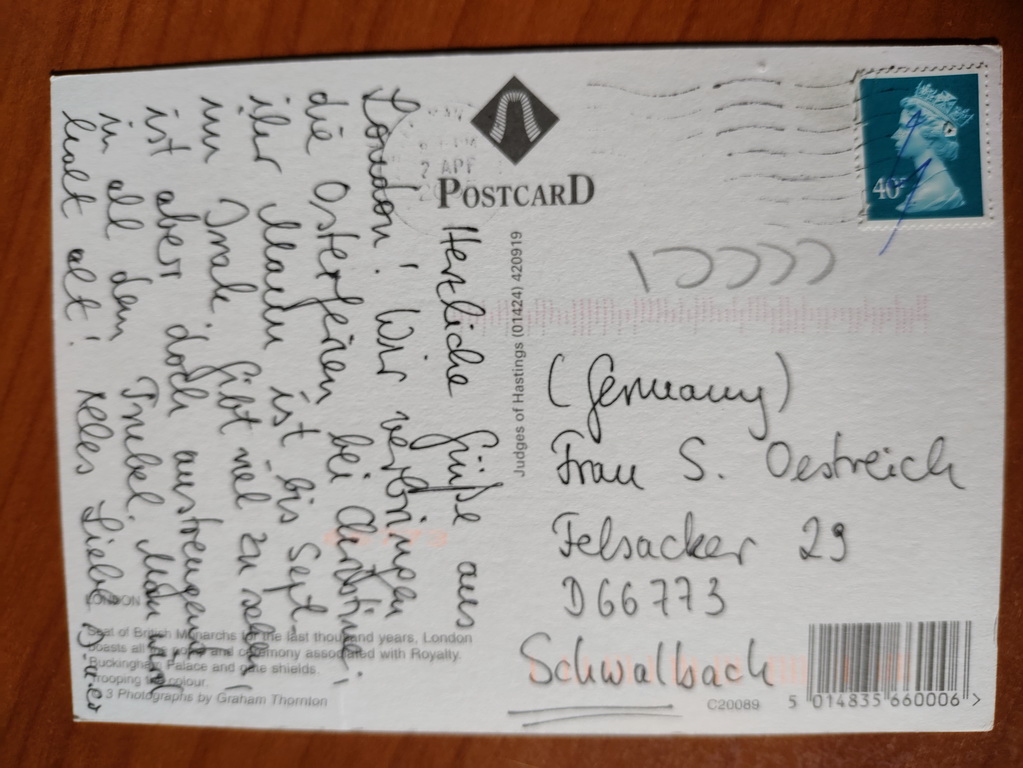 POSTCARD
40
2 APR
Judges of Hastings (01424) 420919
Herzliche Grüße aus
London! Wir verbringen
die Osterferien bei Christine,
ihr Mann ist bis Sept.
im Irak. Gibt viel zu sehen,
ist aber doch anstrengend
in all dem Trubel. Man wird
halt alt! Alles Liebe
(Germany)
Frau S. Oestreich
Felsacker 29
D66773
Schwalbach
LONDON
Seat of British Monarchs for the last thousand years, London
boasts all the pomp and ceremony associated with Royalty.
Buckingham Palace and gate shields.
Trooping the colour.
3 Photographs by Graham Thornton
C20089
5 014835 660006 >